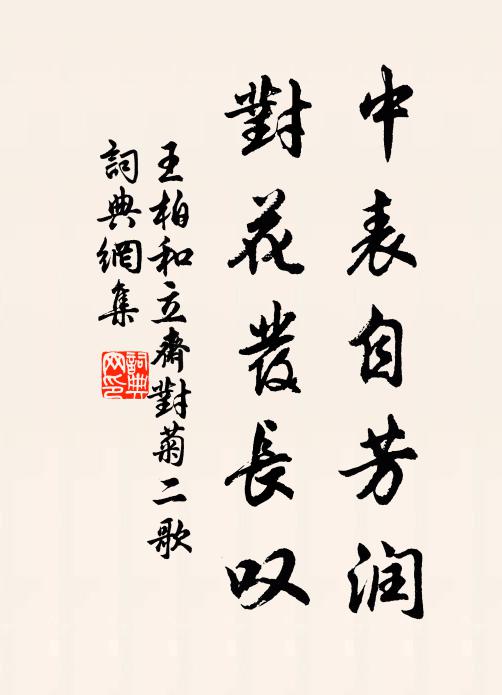 中表自芳润
對花發長叹
王柏和立齋對菊二歌
詞典網集
詞典网印